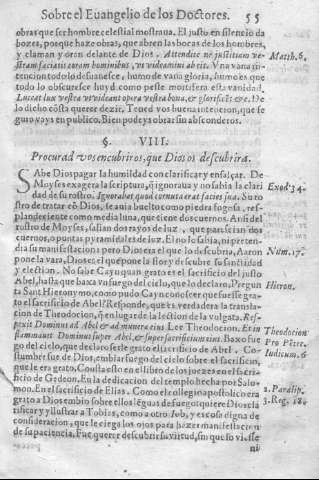 Sobre el Euangelio de los Doctores. 55
obras que ser hombre celestial mostraua. El justo en silencio da
bozes, porque haze obras, que abren las bocas de los hombres,
y claman y oren delante de Dios. Attendite ne justitiam ve- Matth. 6.
stram faciatis coram hominibus, vt videamini ab eis. Vna vana in-
tencion todo lo desuanesce, humo de vana gloria, humo es que
todo lo obscuresce huyd como peste mortifera esta vanidad.
Luceat lux vestra vt videant opera vestra bona, et glorificēt &c. De
lo dicho cōsta querer dezir. Tened vos buena intencion, que se
guro vays en publico. Bien podeys obrar sin absconderos.
§. VIII.
Procurad vos encubriros, que Dios os descubrira.
SAbe Dios pagar la humildad con clarificar y ensalçar. De
Moyses exagera la scriptura, q̃ ignoraua y no sabia la clari
dad de su rostro. Ignorabat quod cornuta erat facies sua. Su ro Exod. 34.
stro de tratar cō Dios, se auia buelto como piedra fogosa, res-
plandeciente como media luna, que tiene dos cuernos. Ansi del
rostro de Moyses, salian dos rayos de luz, que parescian dos
cuernos, o puntas pyramidales de luz. El no lo sabia, ni preten-
dia su manifestacion pero Dios era el que lo descubria, Aaron Num. 17.
pone la vara, Dios es el que pone la flor y descubre su sanctidad
y election. No sabe Cayn quan grato es el sacrificio del justo
Abel, hasta que baxa vn fuego del cielo, que lo declara, Pregun Hieron.
ta Sant Hieronymo, como pudo Cayn conoscer que fuesse gra-
to el sacrificio de Abel? Responde, que es verdadera la transla-
cion de Theodocion, q̃ en lugar de la lection de la vulgata. Res-
pexit Dominus ad Abel & ad munera eius Lee Theodocion. Et in Theodocion
flammauit Dominus super Abel, & super sacrificium eius. Baxo fue Pro Petre.
go del cielo, que declaro ser le grato el sacrificio de Abel. Co- Iudicum. 6
stumbre fue de Dios, embiar fuego del cielo sobre el sacrificio,
que le era grato, Cōsta esto en el libro de los juezes en el sacrifi-
cio de Gedeon. En la dedicacion del templo hecha por Salo- 2. Paralip.
mon. En el sacrificio de Elias. Como el collegio apostolico era 3. Reg. 18.
grato a Dios embio sobre ellos lēguas de fuego quiere Dios cla
rificar y yllustrar a Tobias, como a otro Iob, y es cosa digna de
consideracion, que le ciega los ojos para hazer manifestacion
de su paciencia. Fue querer descubrir su virtud, sin que so vi. sse